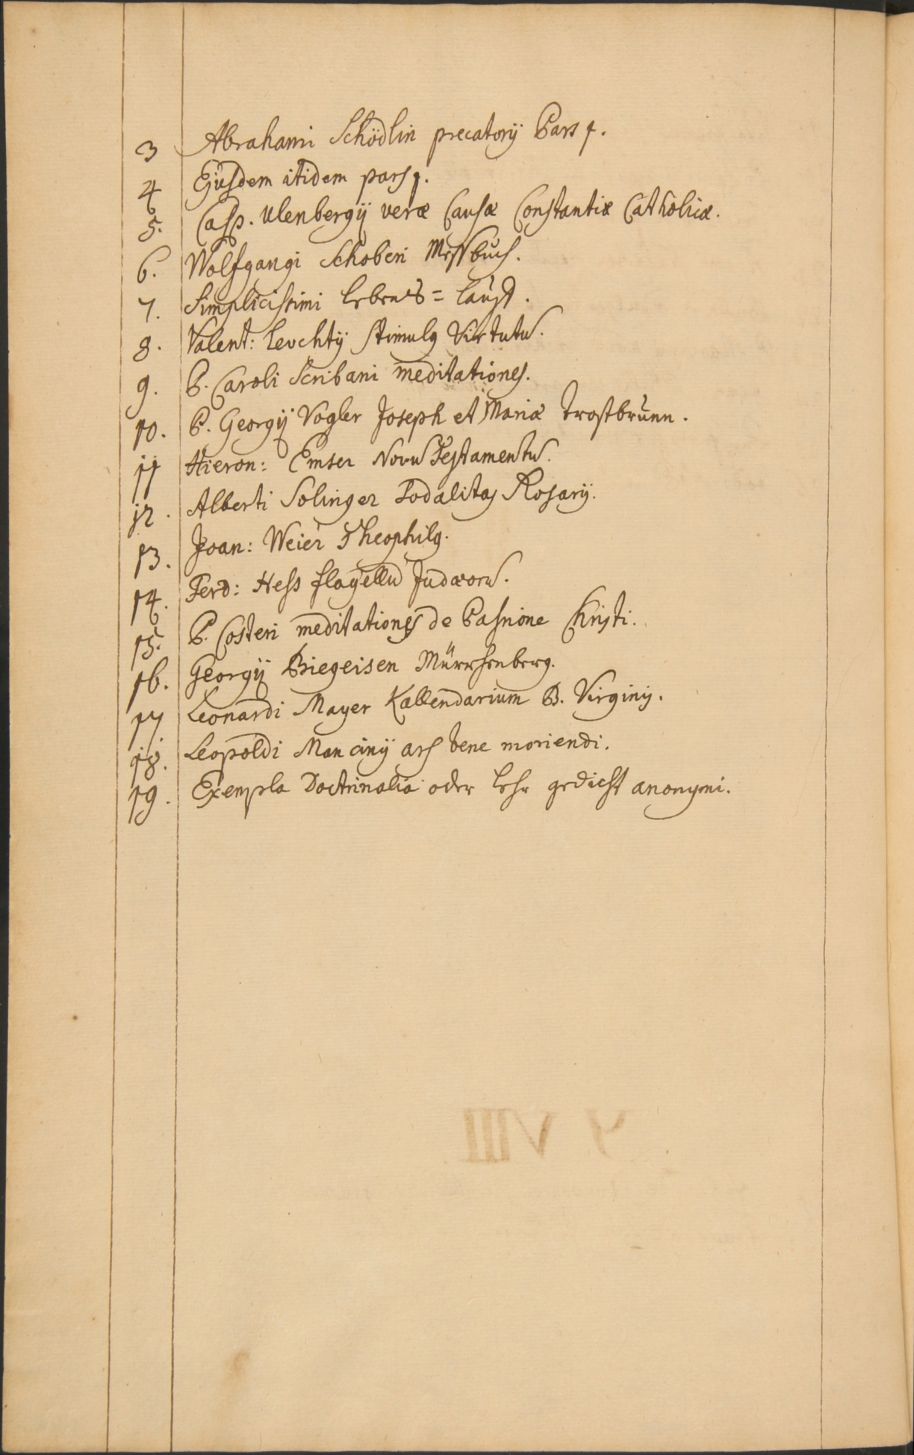 3 Abrahami Schödlin precatorÿ Pars 1.
4 Ejusdem itidem pars
5. Casp. Ulenbergÿ veræ Causæ Constantiæ Catholicæ.
6. Wolfgangi Schoberi Meßbuch.
7. Simplicissimi lebens=lauff.
8. Valent: Levchtÿ Stimulꝰ Virtutū.
9. P. Caroli Scribani meditationes.
10. P. Georgÿ Vogler Joseph et Mariæ trostbrunn.
11 Hieron: Emser Novū Testamentū.
12. Alberti Solinger Sodalitas Rosarÿ.
13. Joan: Weier Theophilꝰ.
14. Ferd: Hess flagellū Judæorū.
15. P. Costeri meditationes de Passione Christi.
16. Georgÿ Biegeisen
17. Leonardi Mayer Kallendarium B. Virginis.
18. Leopoldi Mancinÿ ars bene moriendi.
19. Exempla Doctrinalia oder lehr gedicht anonymi.
Y VIII